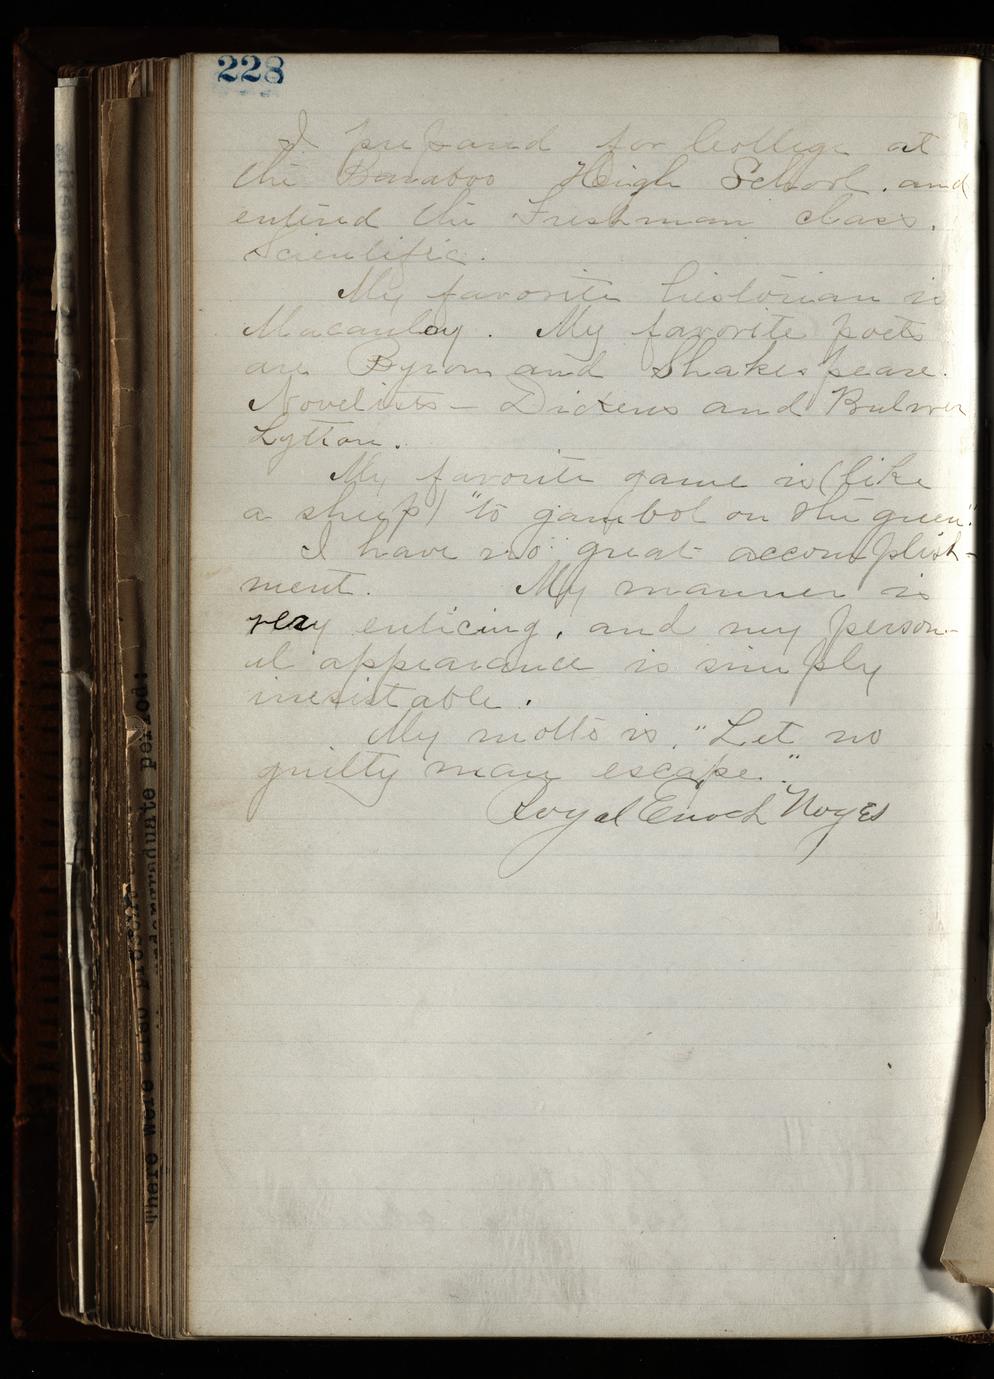 228
I prepared for College at
the Baraboo High School, and
entered the Freshman class.
Scientific.
My favorite historian is
Macaulay. My favorite poets
are Byron and Shakespeare.
Novelists — Dickens and Bulwer
Lytton.
My favorite game is (like
a sheep) "to gambol on the green".
I have no great accomplish-
ment. My manner is
very enticing, and my person-
al appearance is simply
irresistable.
My motto is, "Let no
guilty man escape."
Royal Enoch Noyes
There were also
undergraduate period: